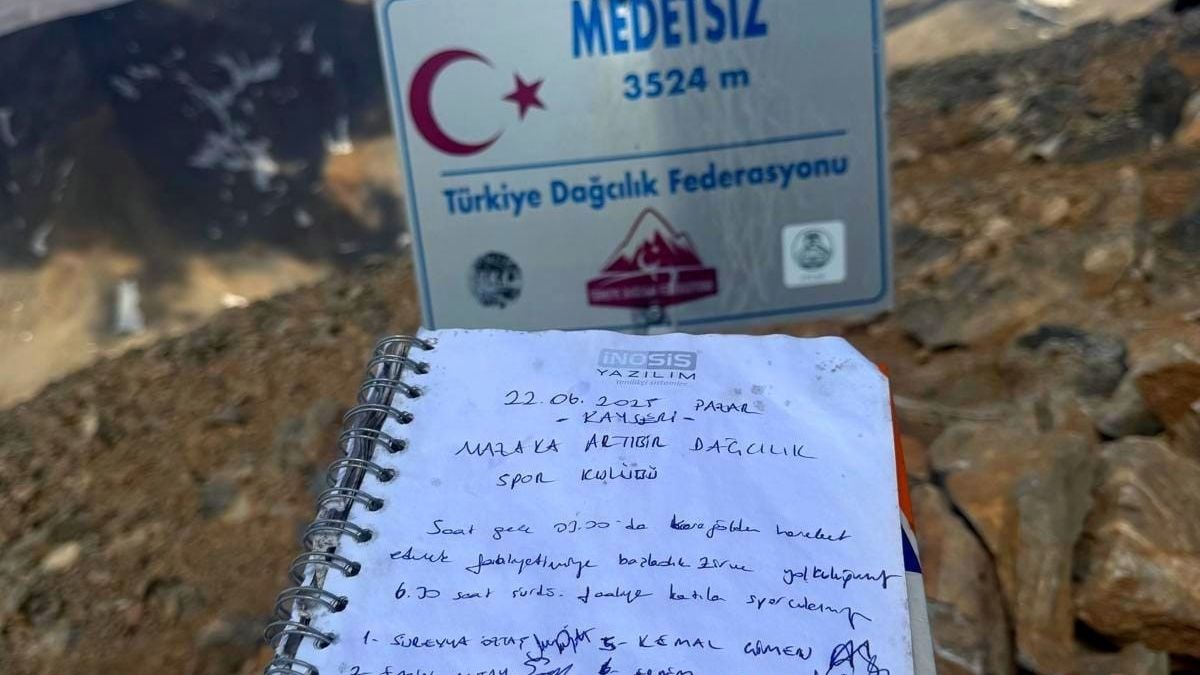 MEDETSİZ
3524 m
Türkiye Dağcılık Federasyonu
iNOSiS
YAZILIM
Yenilikçi sistemler
22.06.2025 PAZAR
- KAYSERİ -
MAZAKA ARTIBİR DAĞCILIK
SPOR KULÜBÜ
Saat gece 03.00 da Karagölden hareket
ederek faaliyetimize başladık zirve yolculuğumuz
saat sürdü. faaliye katıla sporcularımız
1- SÜREYYA 5- KEMAL
2- 6-